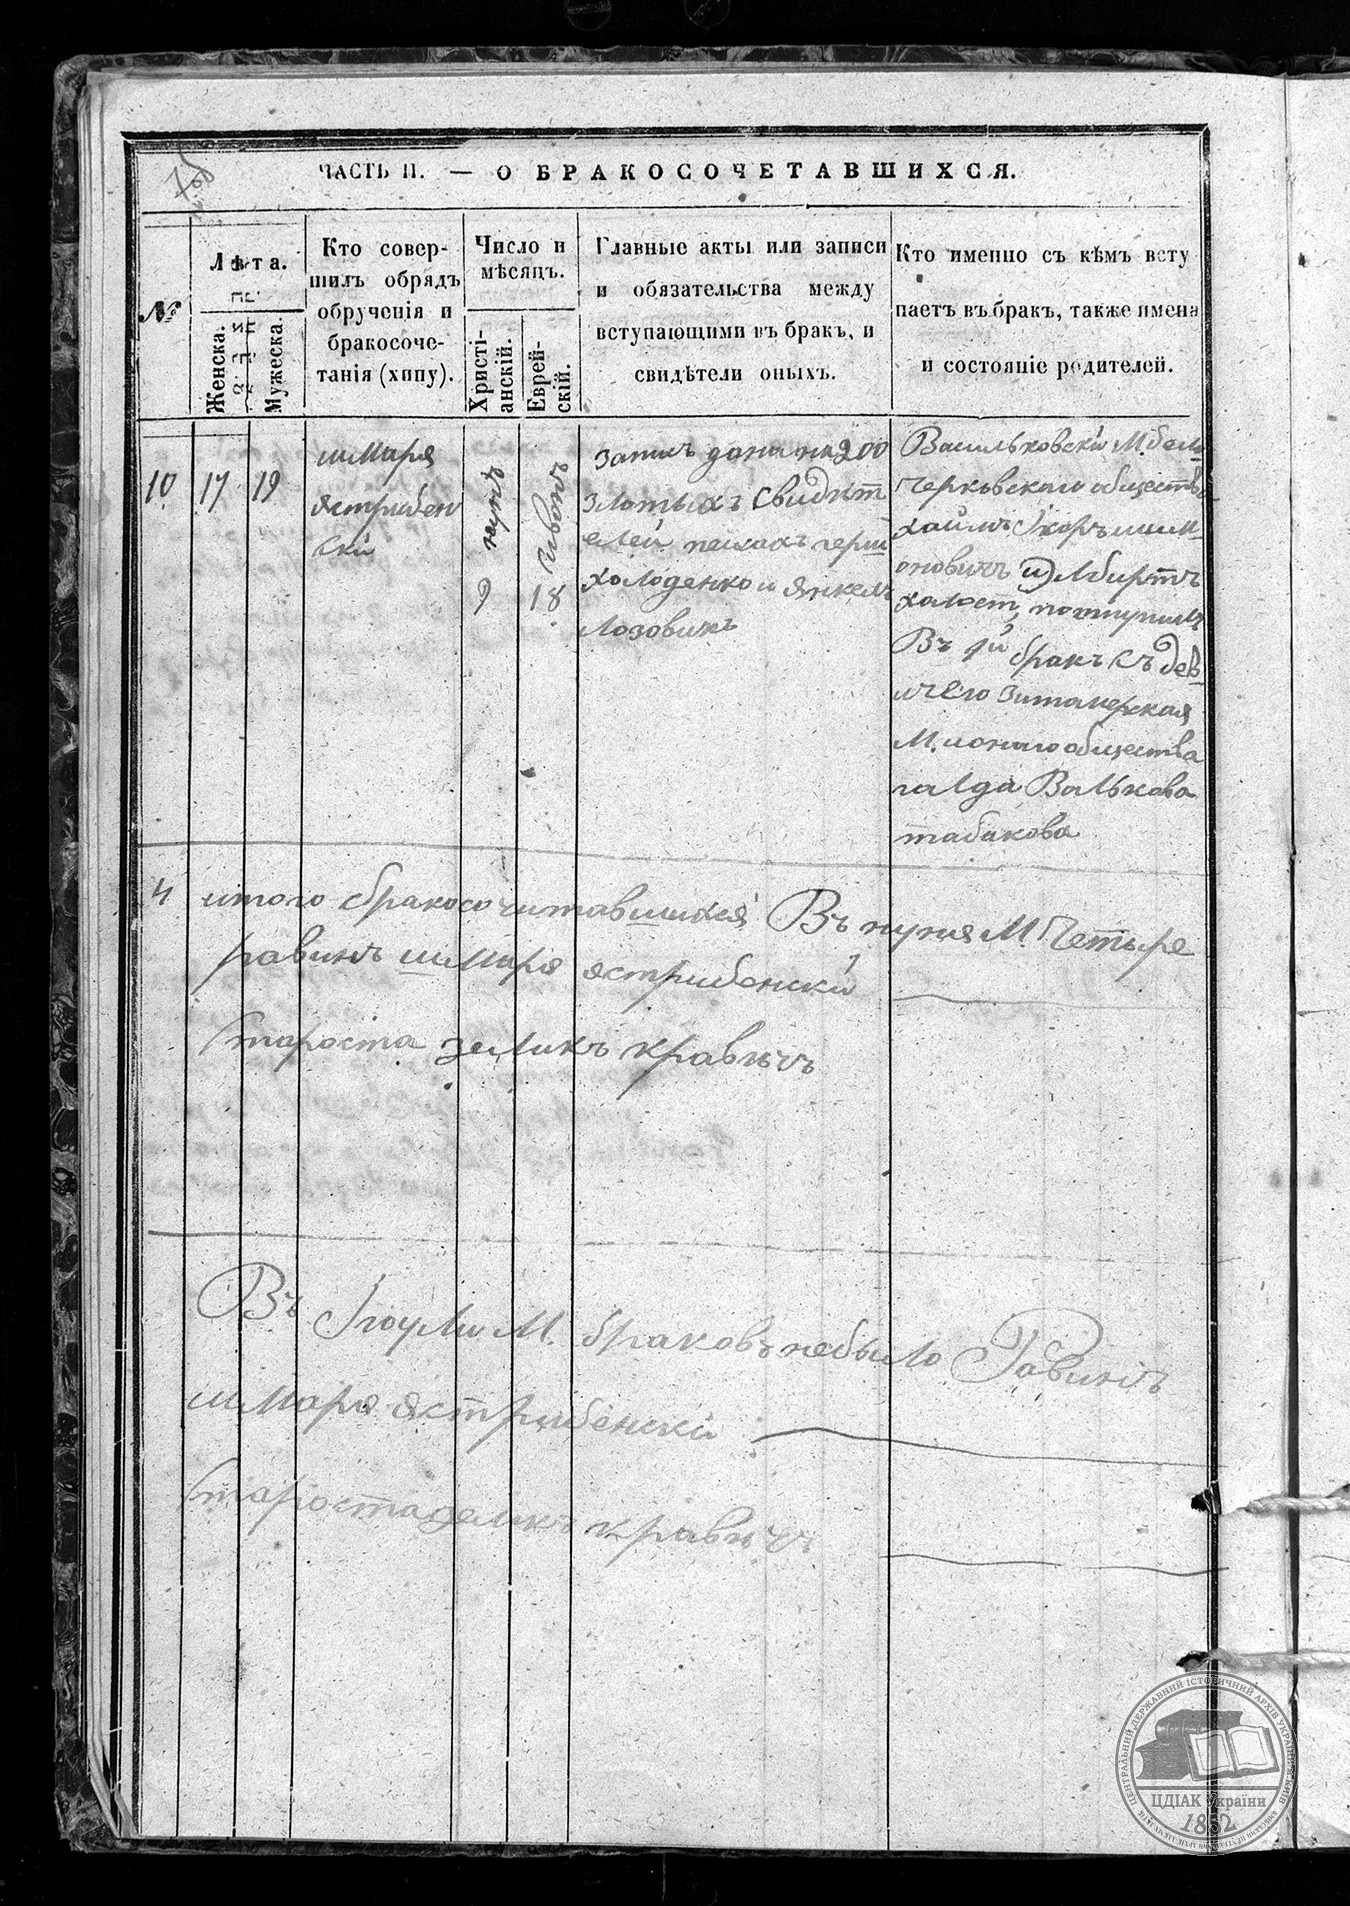 ЧАСТЬ II. — О БРАКОСОЧЕТАВШИХСЯ.
№
Лѣта.
Женска.
Мужеска.
Кто совер-
шилъ обрядъ
обрученія и
бракосоче-
танія (хипу).
Число и
мѣсяцъ.
Христі-
анскій.
Еврей-
скій.
Главные акты или записи
и обязательства между
вступающими въ бракъ, и
свидѣтели оныхъ.
Кто именно съ кѣмъ всту
паетъ въ бракъ, также имена
и состояніе родителей.
10
17
19
шмаря
ястрибен
ски
июня
9
сивон
18
запись дана на 200
злотыхъ свидѣт
елей пейсахъ герш
холоденко и янкель
Лозовикъ
Васильковски М. бел
черковскаго обществ
хаимъ
оновичъ
холост поступил
Въ 1й бракъ съ дев
итомерская
М. общества
Валькова
табакова
4 итого бракосочитавшихся Въ июня М. Четыре
равинъ шмаря ястрибенски
староста зеликъ кравецъ
Въ Июли М. браковъ небыло Равинъ
шмаря ястрибенски
староста зеликъ кравецъ
ЦЕНТРАЛЬНИЙ ДЕРЖАВНИЙ ІСТОРИЧНИЙ АРХІВ УКРАЇНИ, М. КИЇВ
ЦДІАК України
1852